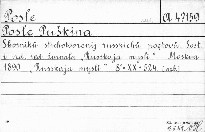 Posle
A 42159
Posle Puškina
Sborník stichotvorenij russkich poetov. Sost.
i izd. red. žurnala „Russkaja mysl". Moskva
1890 „Russkaja mysl". 8° XX + 524.